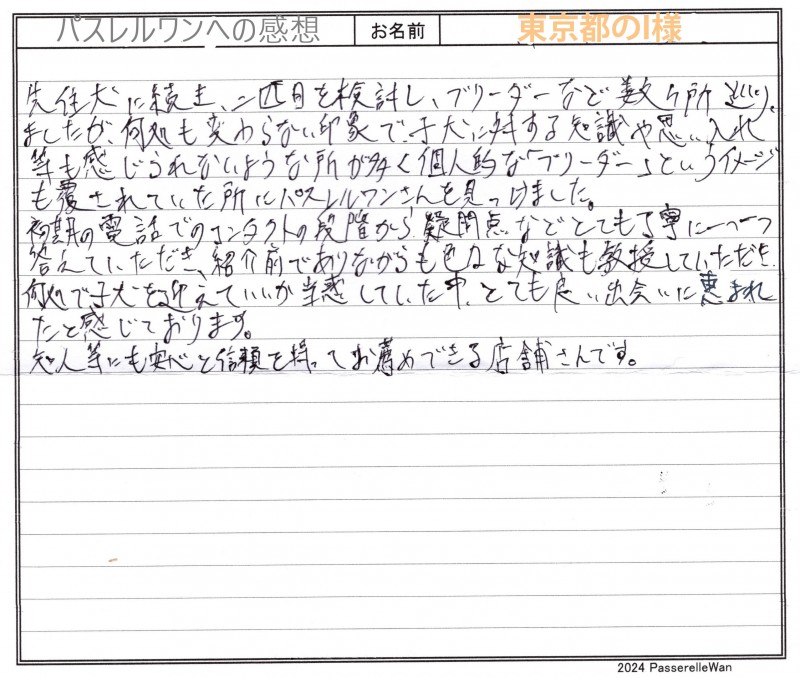 パスレルワンへの感想 お名前 東京都のI様
先住犬に続き、二匹目を検討し、ブリーダーなど数ヶ所巡り
ましたが、何処も変わらない印象で、子犬に対する知識や思い入れ
等も感じられないような所が多く個人的な「ブリーダー」というイメージ
も覆されていた所にパスレルワンさんを見つけました。
初期の電話でのコンタクトの段階から、疑問点などとても丁寧に一つ一つ
答えていただき、紹介前でありながらも色々な知識も教授していただき、
何処で子犬を迎えていいか当惑していた中、とても良い出会いに恵まれ
たと感じております。
知人等にも安心と信頼を持ってお薦めできる店舗さんです。
2024 PasserelleWan